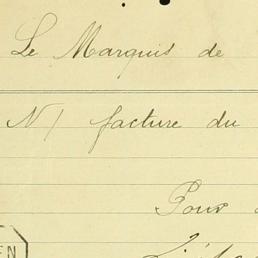 Le Marquis de
N/ facture du
Pour
EN